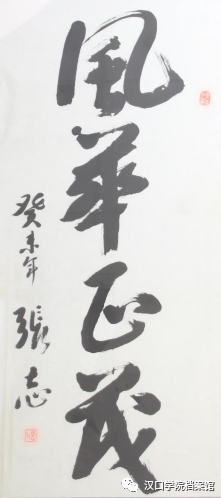 風華正茂
癸未年 張志
汉口学院档案馆